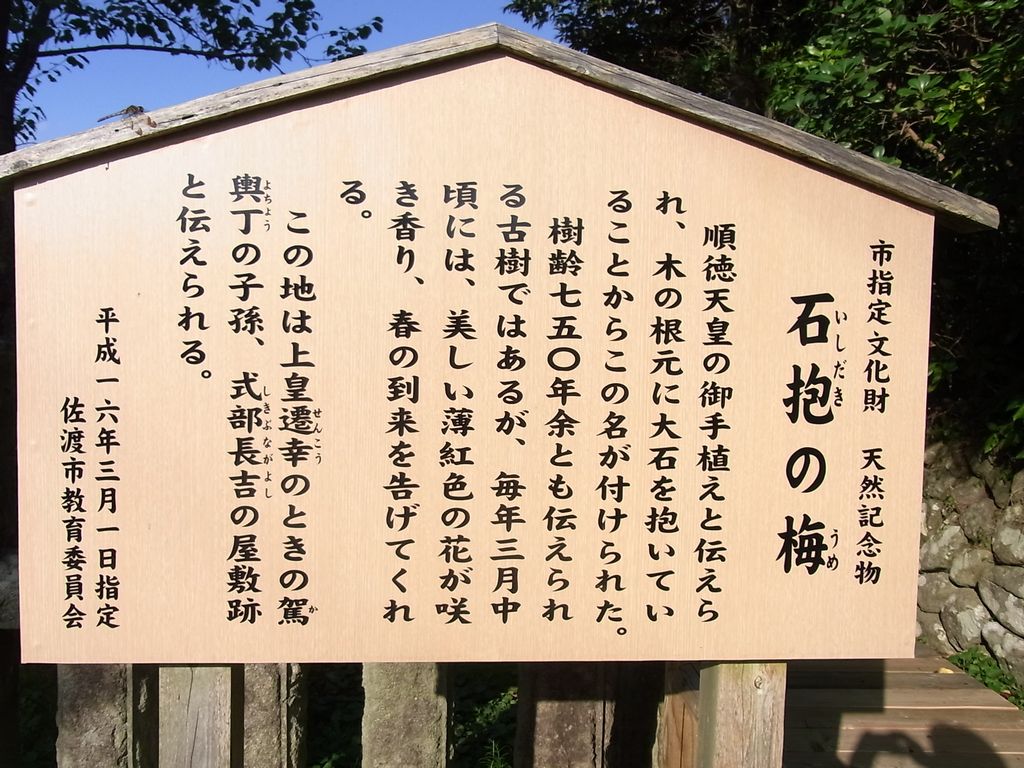 市指定文化財　天然記念物
石抱の梅
いしだき　うめ
順徳天皇の御手植えと伝えら
れ、木の根元に大石を抱いてい
ることからこの名が付けられた。
樹齢七五〇年余とも伝えられ
る古樹ではあるが、毎年三月中
頃には、美しい薄紅色の花が咲
き香り、春の到来を告げてくれ
る。
この地は上皇遷幸のときの駕
せんこう　か
輿丁の子孫、式部長吉の屋敷跡
よちょう　しきぶながよし
と伝えられる。
平成一六年三月一日指定
佐渡市教育委員会